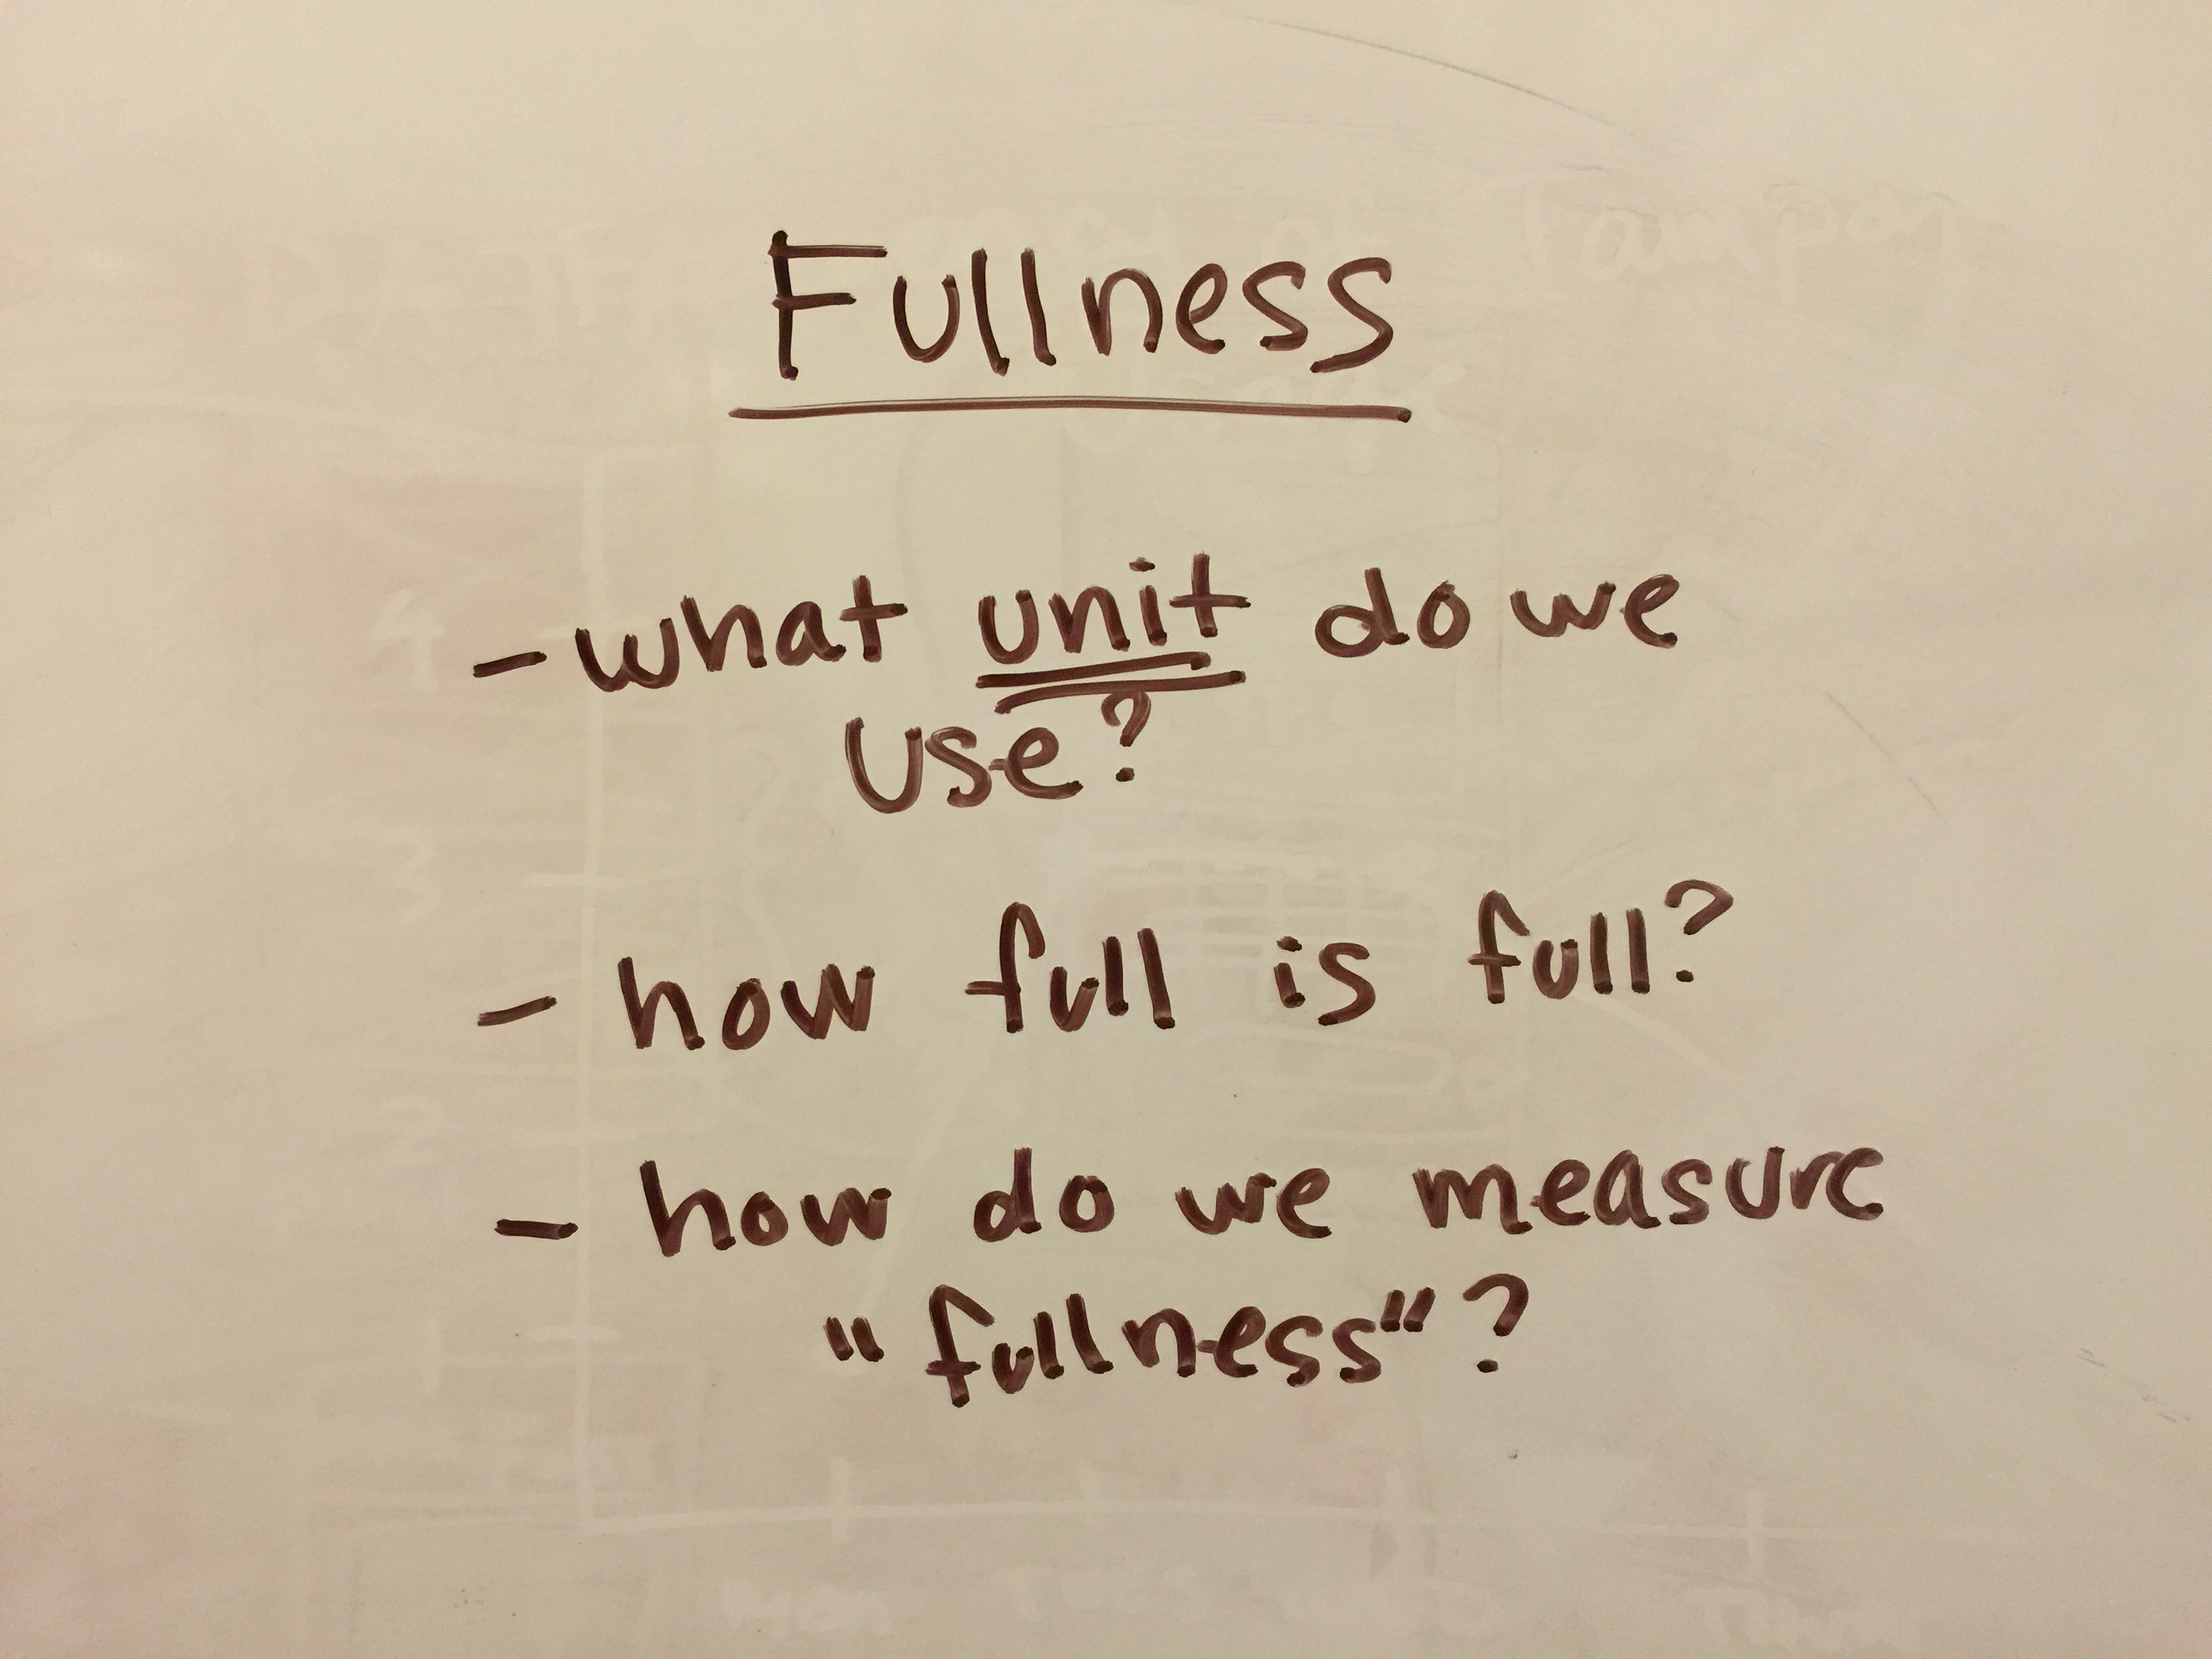 Fullness
- what unit do we
use?
- how full is full?
- how do we measure
"fullness"?